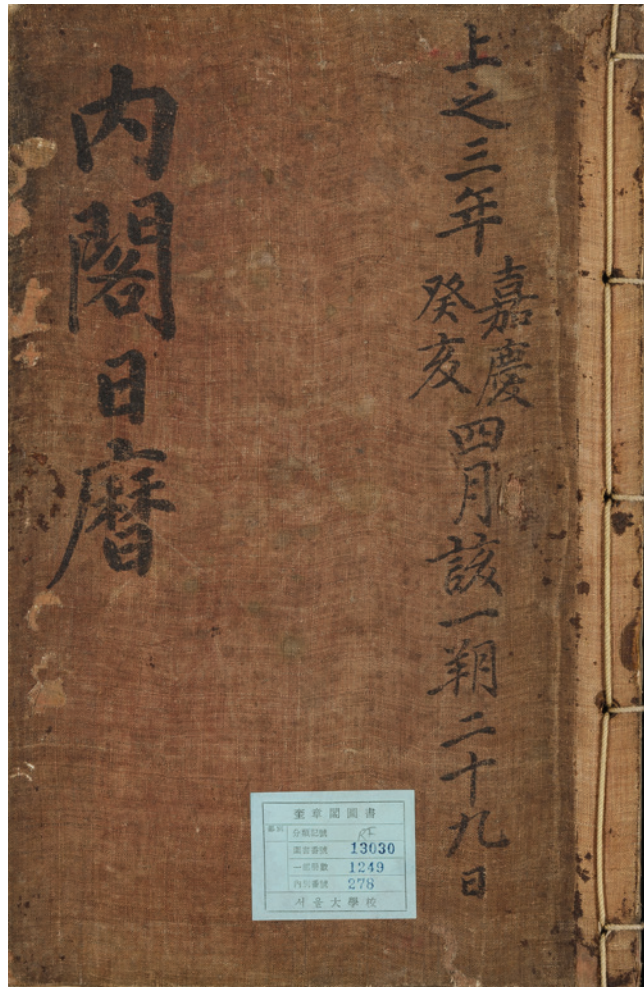 上之三年
嘉慶
癸亥
四月該一朔二十九日
內閣日曆
奎章閣圖書
分類記號
圖書番號 13030
一部冊數 1249
內別番號 278
서울大學校